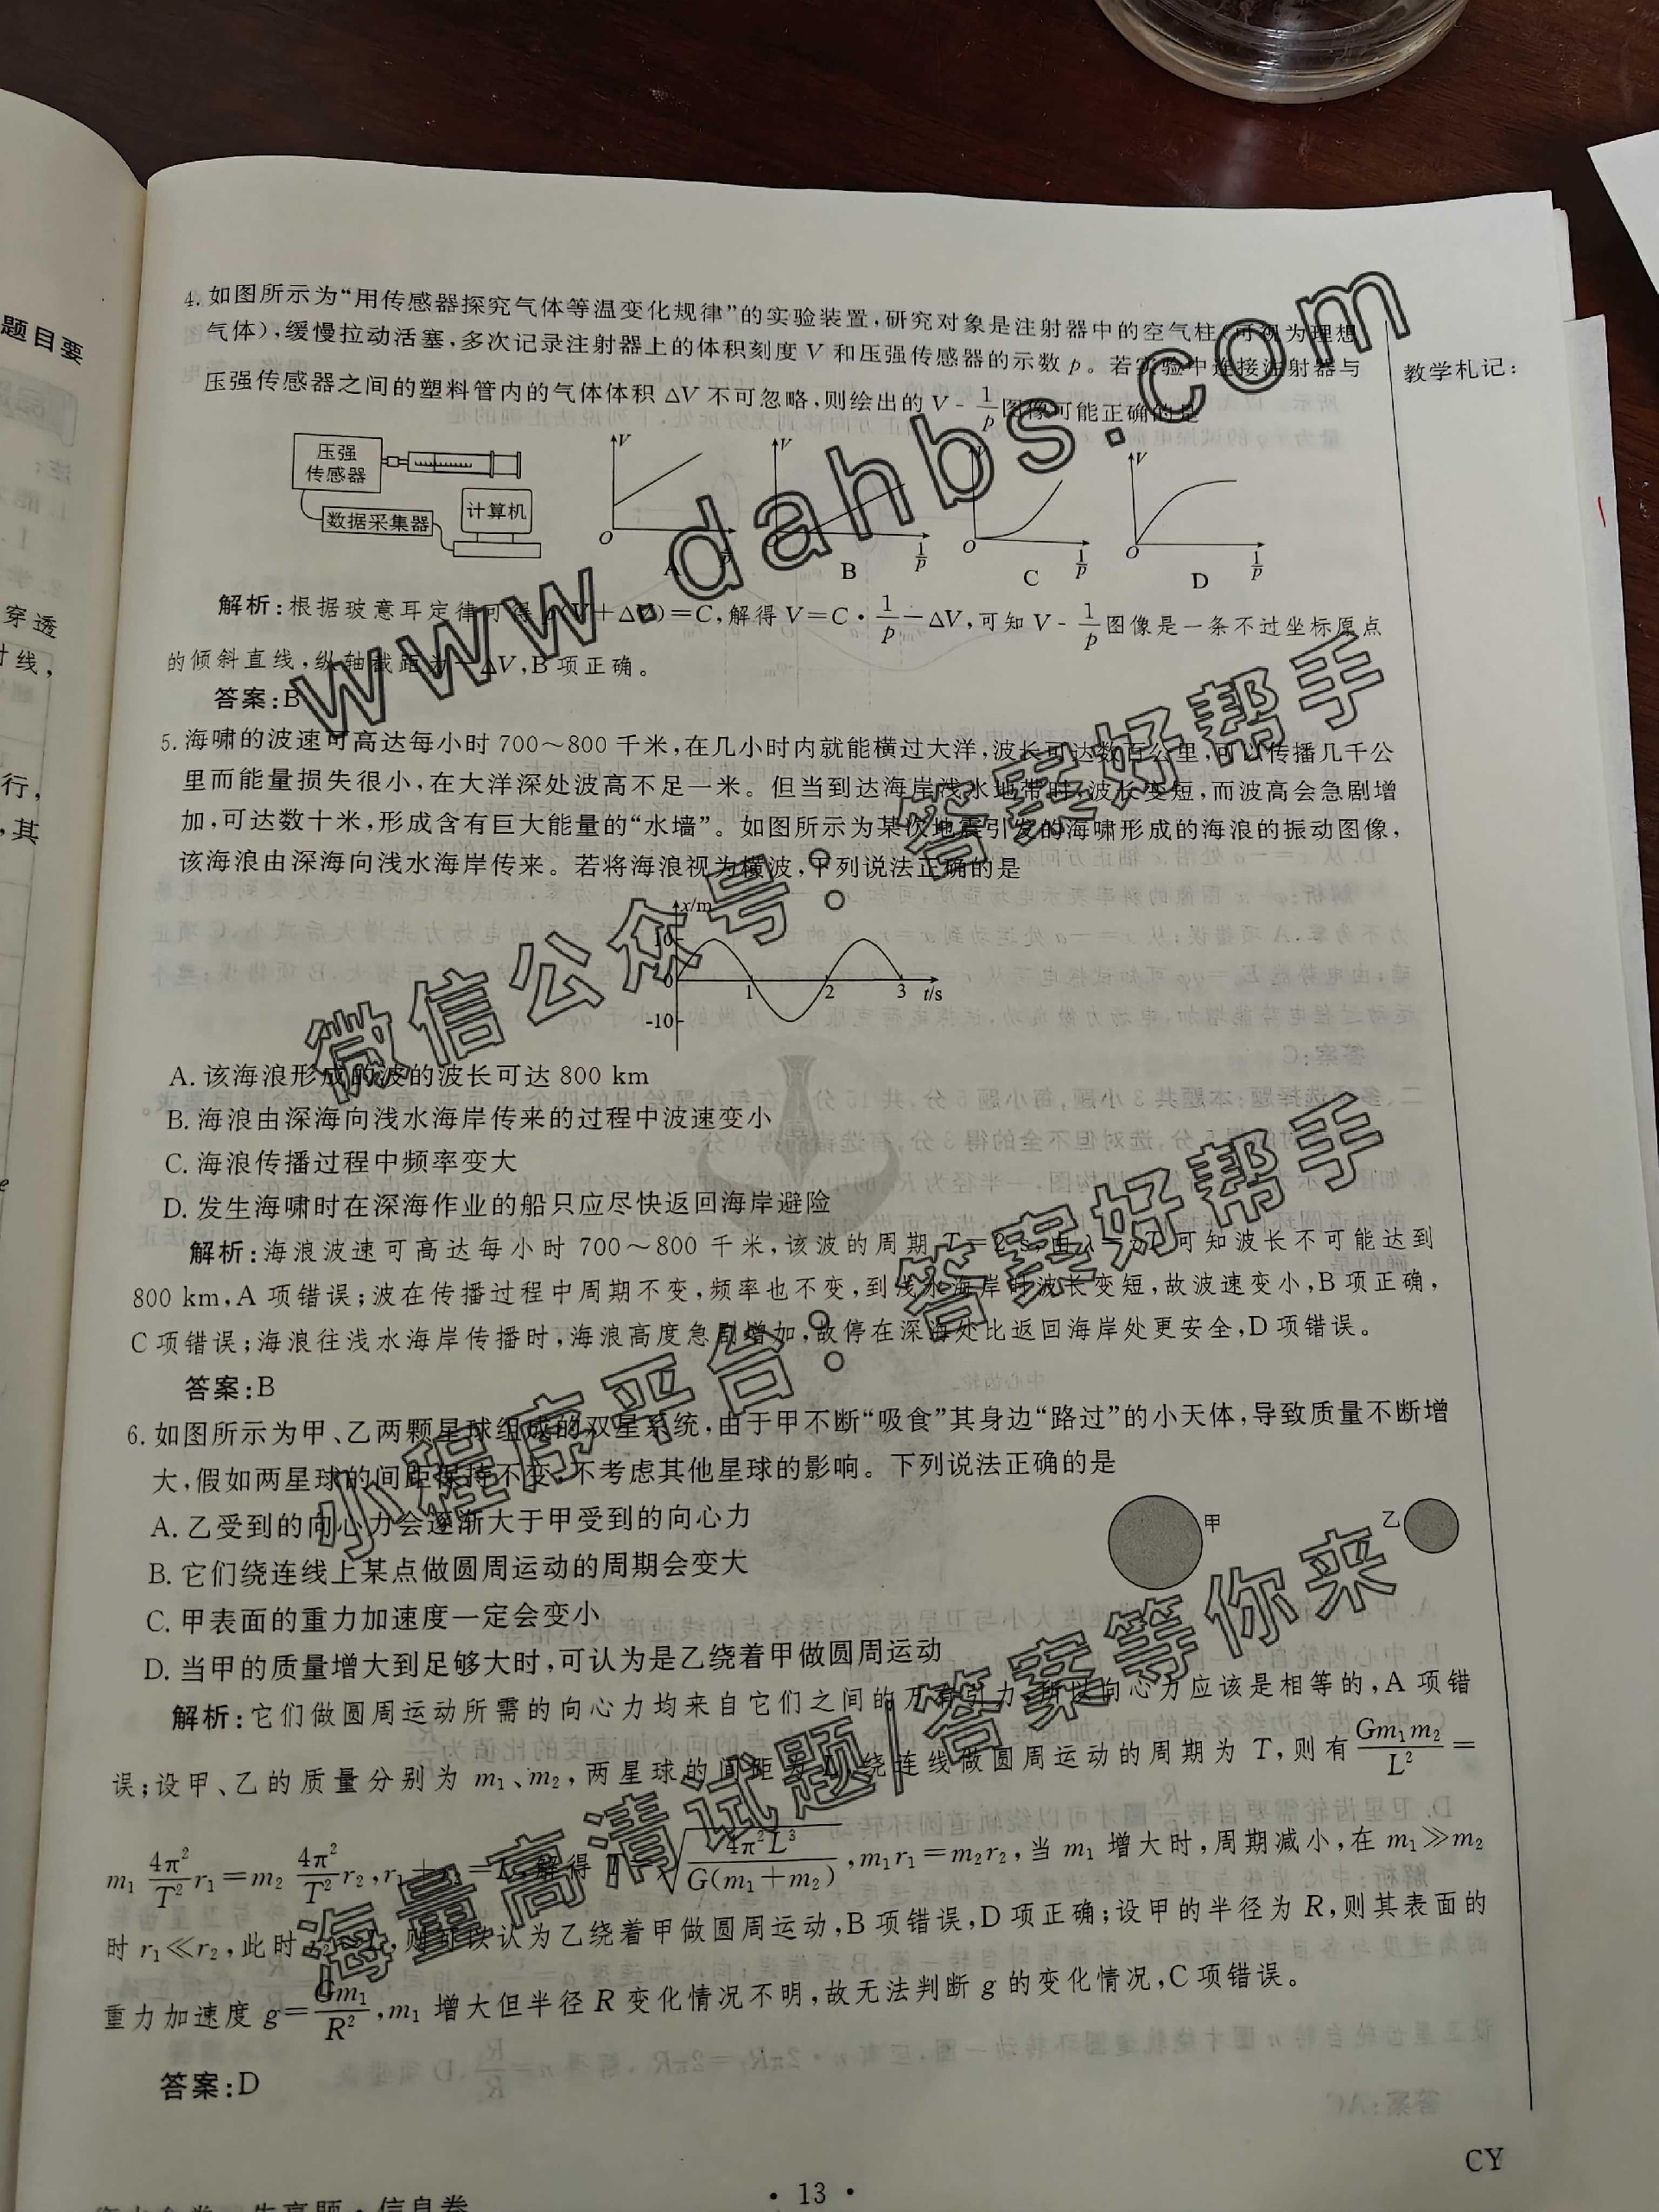 4. 如图所示为“用传感器探究气体等温变化规律”的实验装置,研究对象是注射器中的空气柱(可视为理想
气体),缓慢拉动活塞,多次记录注射器上的体积刻度 V 和压强传感器的示数 p。若实验中连接注射器与
压强传感器之间的塑料管内的气体体积 ΔV 不可忽略,则绘出的 V - 1/p 图像可能正确的是
教学札记:
压强
传感器
数据采集器
计算机
V
O
1/p
A
V
1/p
B
V
O
1/p
C
V
O
1/p
D
解析:根据玻意耳定律可得 p(V+ΔV)=C,解得 V=C·1/p-ΔV,可知 V - 1/p 图像是一条不过坐标原点
的倾斜直线,纵轴截距为-ΔV,B 项正确。
答案:B
5. 海啸的波速可高达每小时 700~800 千米,在几小时内就能横过大洋,波长可达数百公里,可以传播几千公
里而能量损失很小,在大洋深处波高不足一米。但当到达海岸浅水地带时,波长变短,而波高会急剧增
加,可达数十米,形成含有巨大能量的“水墙”。如图所示为某次地震引发的海啸形成的海浪的振动图像,
该海浪由深海向浅水海岸传来。若将海浪视为横波,下列说法正确的是
x/m
10
0
1
2
3
t/s
-10
A. 该海浪形成的波的波长可达 800 km
B. 海浪由深海向浅水海岸传来的过程中波速变小
C. 海浪传播过程中频率变大
D. 发生海啸时在深海作业的船只应尽快返回海岸避险
解析:海浪波速可高达每小时 700~800 千米,该波的周期 T=2 s,由 λ=vT 可知波长不可能达到
800 km,A 项错误;波在传播过程中周期不变,频率也不变,到浅水海岸时波长变短,故波速变小,B 项正确,
C 项错误;海浪往浅水海岸传播时,海浪高度急剧增加,故停在深海处比返回海岸处更安全,D 项错误。
答案:B
6. 如图所示为甲、乙两颗星球组成的双星系统,由于甲不断“吸食”其身边“路过”的小天体,导致质量不断增
大,假如两星球的间距保持不变,不考虑其他星球的影响。下列说法正确的是
A. 乙受到的向心力会逐渐大于甲受到的向心力
B. 它们绕连线上某点做圆周运动的周期会变大
C. 甲表面的重力加速度一定会变小
D. 当甲的质量增大到足够大时,可认为是乙绕着甲做圆周运动
甲
乙
解析:它们做圆周运动所需的向心力均来自它们之间的万有引力,所以向心力应该是相等的,A 项错
误;设甲、乙的质量分别为 m₁、m₂,两星球的间距为 L,绕连线做圆周运动的周期为 T,则有 Gm₁m₂/L² =
m₁ 4π²/T² r₁=m₂ 4π²/T² r₂,r₁+r₂=L,解得 T=√(4π²L³/G(m₁+m₂)),m₁r₁=m₂r₂,当 m₁ 增大时,周期减小,在 m₁≫m₂
时 r₁≪r₂,此时,则认为乙绕着甲做圆周运动,B 项错误,D 项正确;设甲的半径为 R,则其表面的
重力加速度 g=Gm₁/R²,m₁ 增大但半径 R 变化情况不明,故无法判断 g 的变化情况,C 项错误。
答案:D
· 13 ·
CY
信息卷
题目要
穿透
行,
其
www.dahbs.com
微信公众号:答案好帮手
小程序平台:答案好帮手
海量高清试题|答案等你来